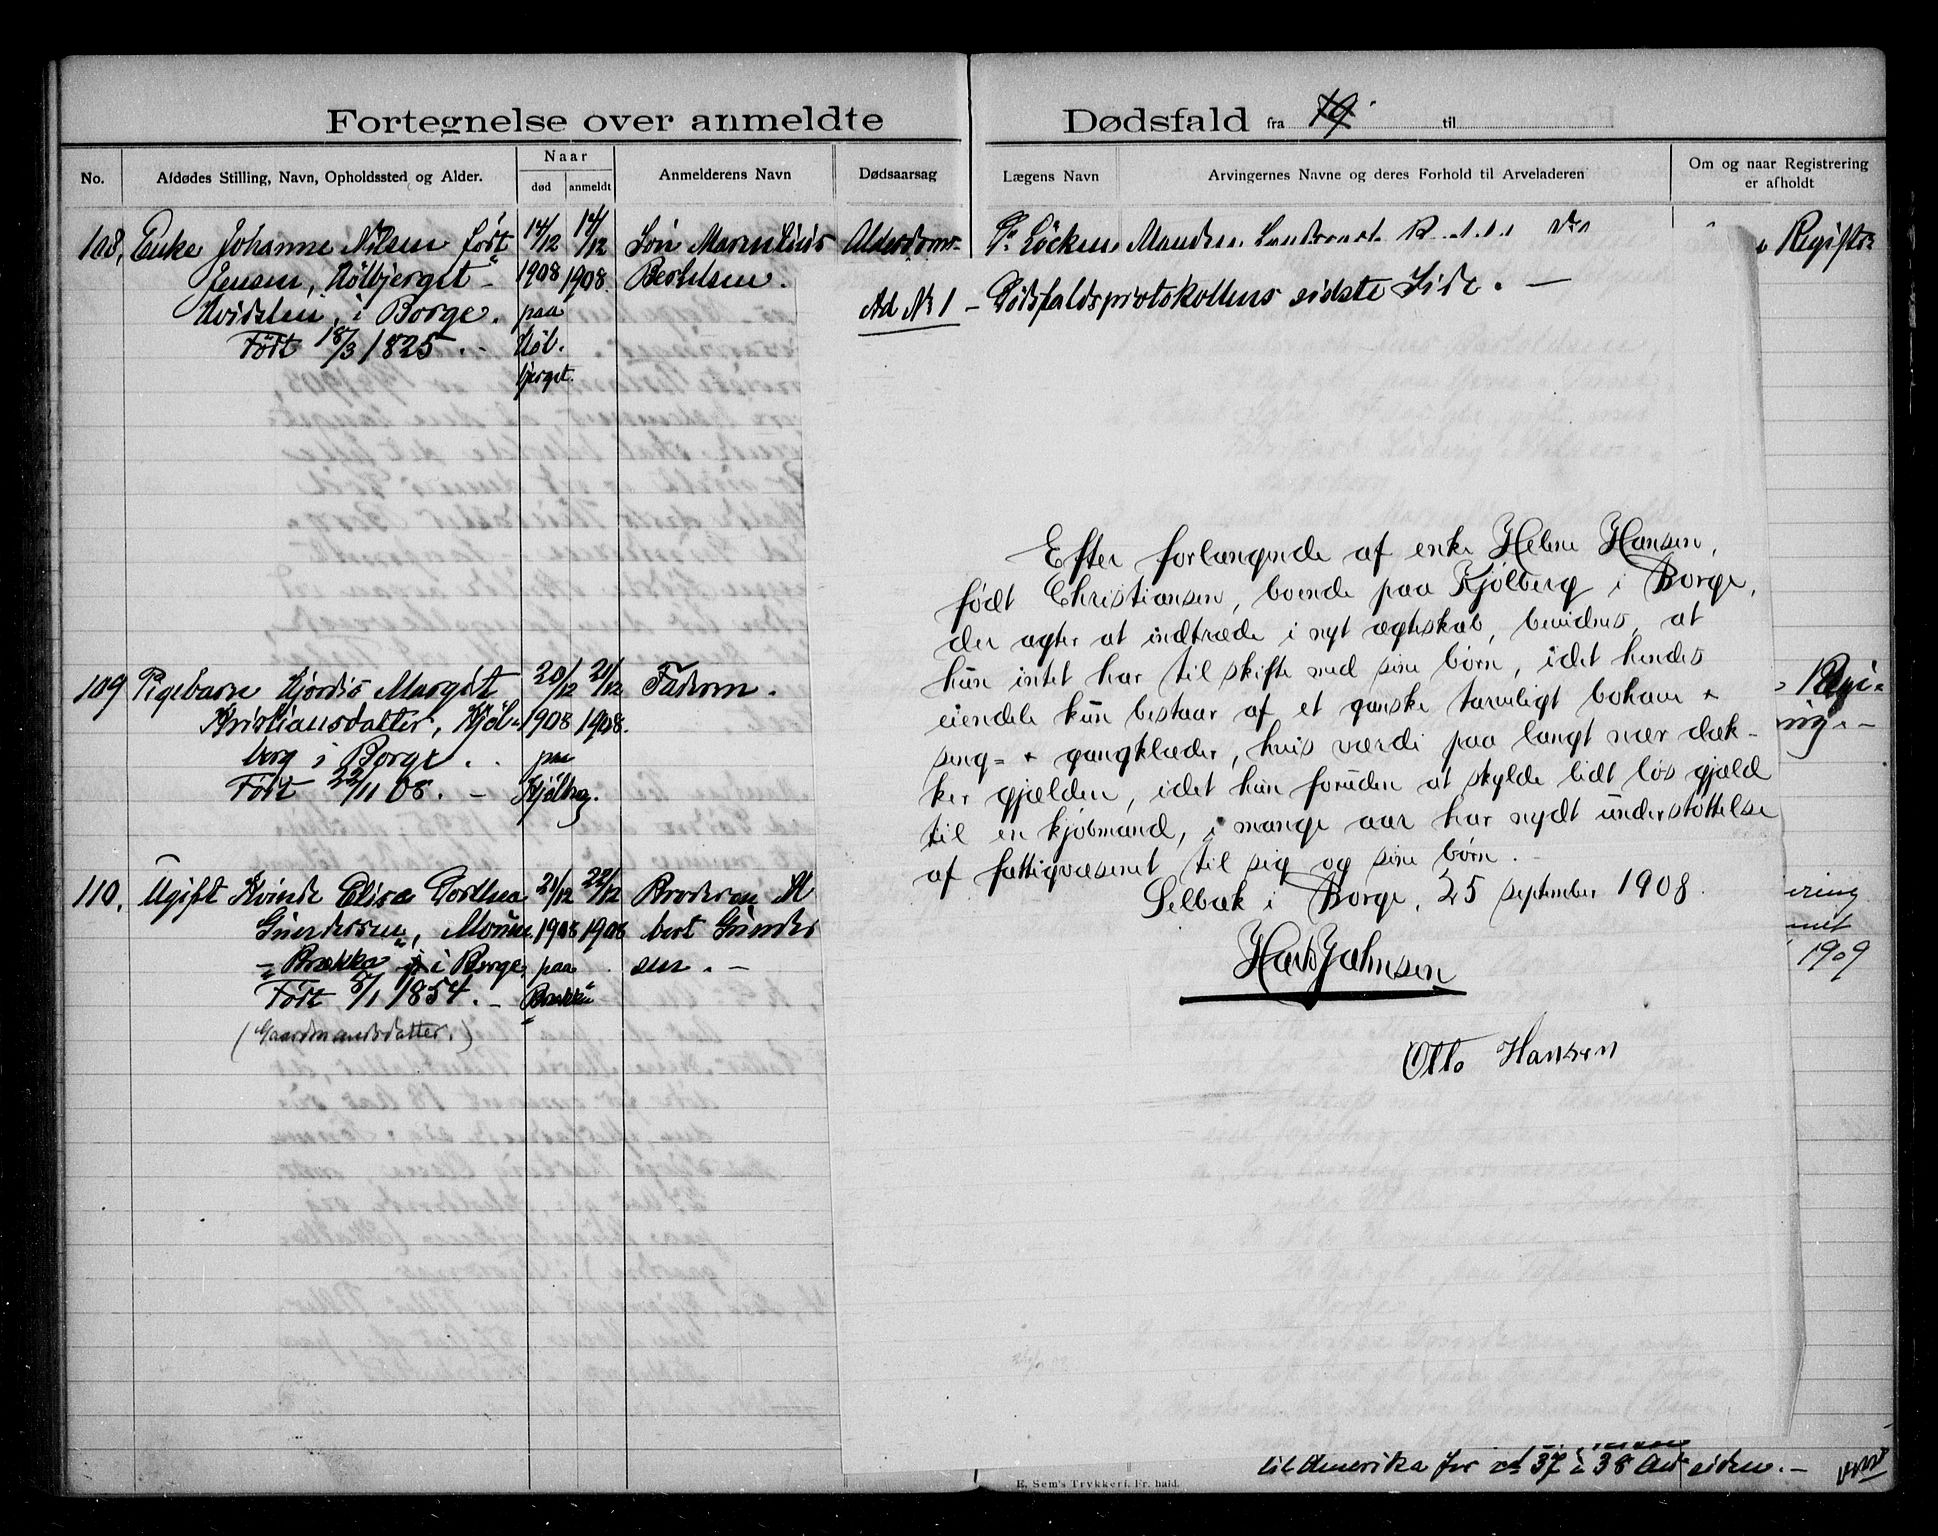 Fortegnelse over anmeldte Dødsfald fra 19 til
No.
Afdødes Stilling, Navn, Opholdssted og Alder.
Naar
død anmeldt
Anmelderens Navn
Dødsaarsag
Lægens Navn
Arvingernes Navne og deres Forhold til Arveladeren
Om og naar Registrering
er afholdt
108. Enke Johanne Nilsen født
Jensen, Kølbjerget -
i Borge.
Født 18/3 1825. -
14/12
1908
paa
Køl-
bjerget.
14/12
1908.
Søn
Alderdoms-
Dr Løcken
Registre
Ad No 1 - Dødsfaldsprotokollens sidste Side. -
Efter forlangende af enke Helene Hansen,
født Christiansen, boende paa Kjølberg i Borge,
der agter at indtræde i nyt ægteskab, bevidnes, at
hun intet har til skifte med sine børn, idet hendes
eiendele kun bestaar af et ganske tarveligt bohave +
seng- + gangklæder, hvis værdi paa langt nær dæk-
ker gjælden, idet hun foruden at skylde lidt løs gjæld
til en kjøbmand, i mange aar har nydt understøttelse
af fattigvæsenet til sig og sine børn. -
Selbak i Borge, 25 september 1908.
Hans Johnsen
Otto Hansen
109 Pigebarn Hjørdis Margit
Kristiansdatter, Kjøl-
berg i Borge. -
Født 22/11 08. -
20/12
1908
paa
Kjølberg.
21/12
1908.
Faderen.
110. Ugift Kvinde Elise Dorthea
Gundersen, Moum
- Brække i Borge
Født 5/1 1854. -
(Gaardmandsdatter.)
21/12
1908
paa
Brække
22/12
1908
Broderen Al
bert Gunder
sen. -
ering
1909
til Amerika for ca 37 a 38 Aar siden. -
E. Sem's Trykkeri, Fr. hald.